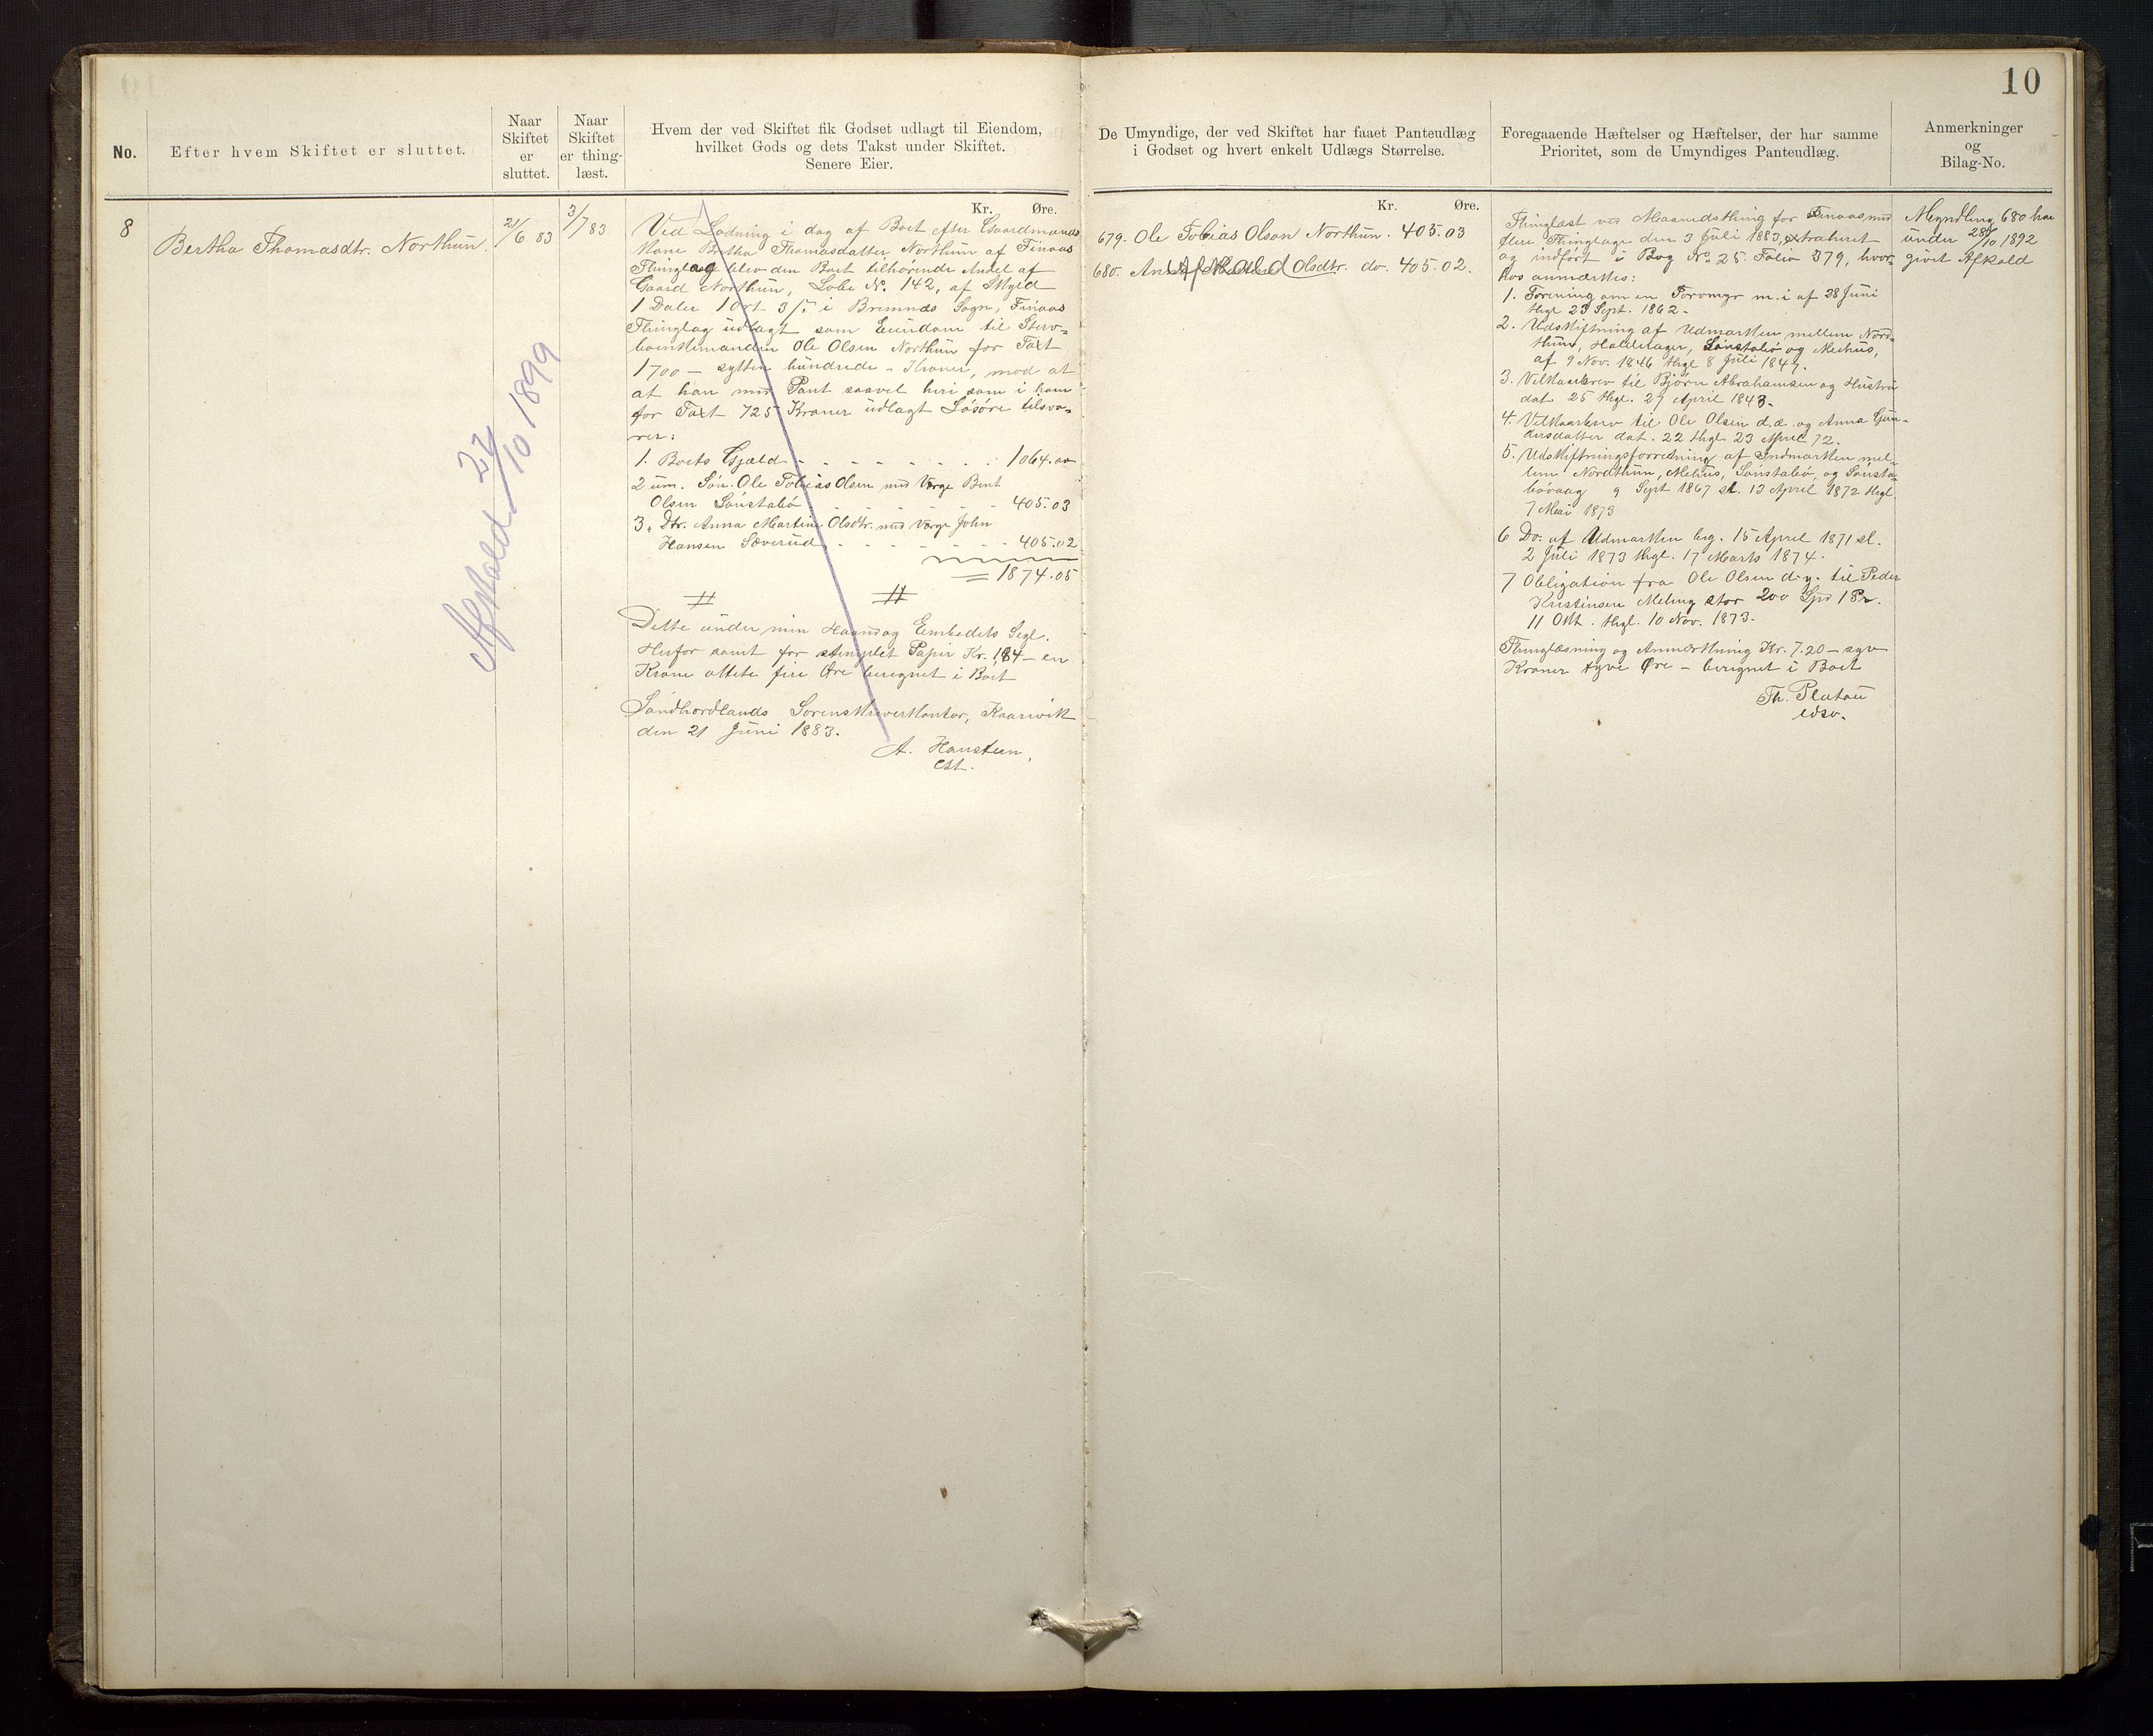 10
No.
Efter hvem Skiftet er sluttet.
Naar
Skiftet
er
sluttet.
Naar
Skiftet
er thing-
læst.
Hvem der ved Skiftet fik Godset udlagt til Eiendom,
hvilket Gods og dets Takst under Skiftet.
Senere Eier.
De Umyndige, der ved Skiftet har faaet Panteudlæg
i Godset og hvert enkelt Udlægs Størrelse.
Foregaaende Hæftelser og Hæftelser, der har samme
Prioritet, som de Umyndiges Panteudlæg.
Anmerkninger
og
Bilag-No.
8
Bertha Thomasdtr. Northun.
21/6 83
3/7 83
Afkald 27/10 1899
Kr. Øre.
Ved Lodning i dag af Boet efter Gaardmands
Kone Brtha Thomasdatter Northun af Finaas
Thinglag blev den Boet tilhørende Andel af
Gaard Northun, Løbe No. 142, af Skyld
1 Daler 1 Ort 3 /: i Bremnæs Sogn, Finaas
Thinglag udlagt som Eiendom til Sterv-
boenkemanden Ole Olsen Northun for Taxt
1700 – sytten hundrede – Kroner, mod at
at han med Pant saavel heri som i ham
for Taxt 725 Kroner udlagt Løsøre tilsva-
rer:
1. Boets Gjæld 1064.00
2 um. Søn. Ole Tobias Olsen med Værge Bent
Olsen Sønstabø 405.03
3. Dtr. Anna Martine Olsdtr. med Værge John
Hansen Sæverud 405.02
= 1874.05
Dette under min Haand og Embedets Segl.
Herfor samt for stemplet Papir Kr. 1,84 – en
Krone ottete fire Øre beregnet i Boet
Søndhordlands Sorenskriverkontor, Kaarevik
den 21 Juni 1883.
A. Hansteen,
cst.
Kr. Øre.
679. Ole Tobias Olson Northun. 405.03
680. Afkald Olsdtr. do. 405.02.
Thinglæst ved Maanedsthing for Finaas med
flere Thinglage den 3 Juli 1883, extraheret
og indført i Bog No. 25 Folio 379, hvor-
hos anmærkes:
1. Forening om en Torvmyr m. i af 28 Juni
thgl 23 Sept. 1862.
2. Udskiftning af Udmarken mellem Nord-
thun, Halderagen, Sønstabø og Mæhus,
af 9 Nov. 1846 thgl 8 Juli 1847.
3. Vilkaarbrev til Bjørn Abrahamsen og Hustru
dat 25 thgl. 27 April 1843.
4. Vilkaarbrev til Ole Olsen d.æ. og Anna Gun-
dersdatter dat. 22 thgl 23 April 72.
5. Udskiftningsforretning af Indmarken mel-
lem Nordthun, Mehus, Sønstabø, og Sønsta-
bøvaag 9 Sept 1867 sl. 13 April 1872 thgl.
7 Mai 1873
6 Do. af Udmarken beg. 15 April 1871 sl.
2 Juli 1873 thgl. 17 Marts 1874.
7 Obligation fra Ole Olsen d.y. til Peder
Kristensen Meling stor 200 Spd 1 Pr.
11 Okt. thgl. 10 Nov. 1873.
Thinglæsning og Anmærkning Kr. 7.20 – syv
Kroner tyve Øre – beregnet i Boet
Th. Platou
edsv.
Myndling 680 har
under 28/10 1892
givet Afkald